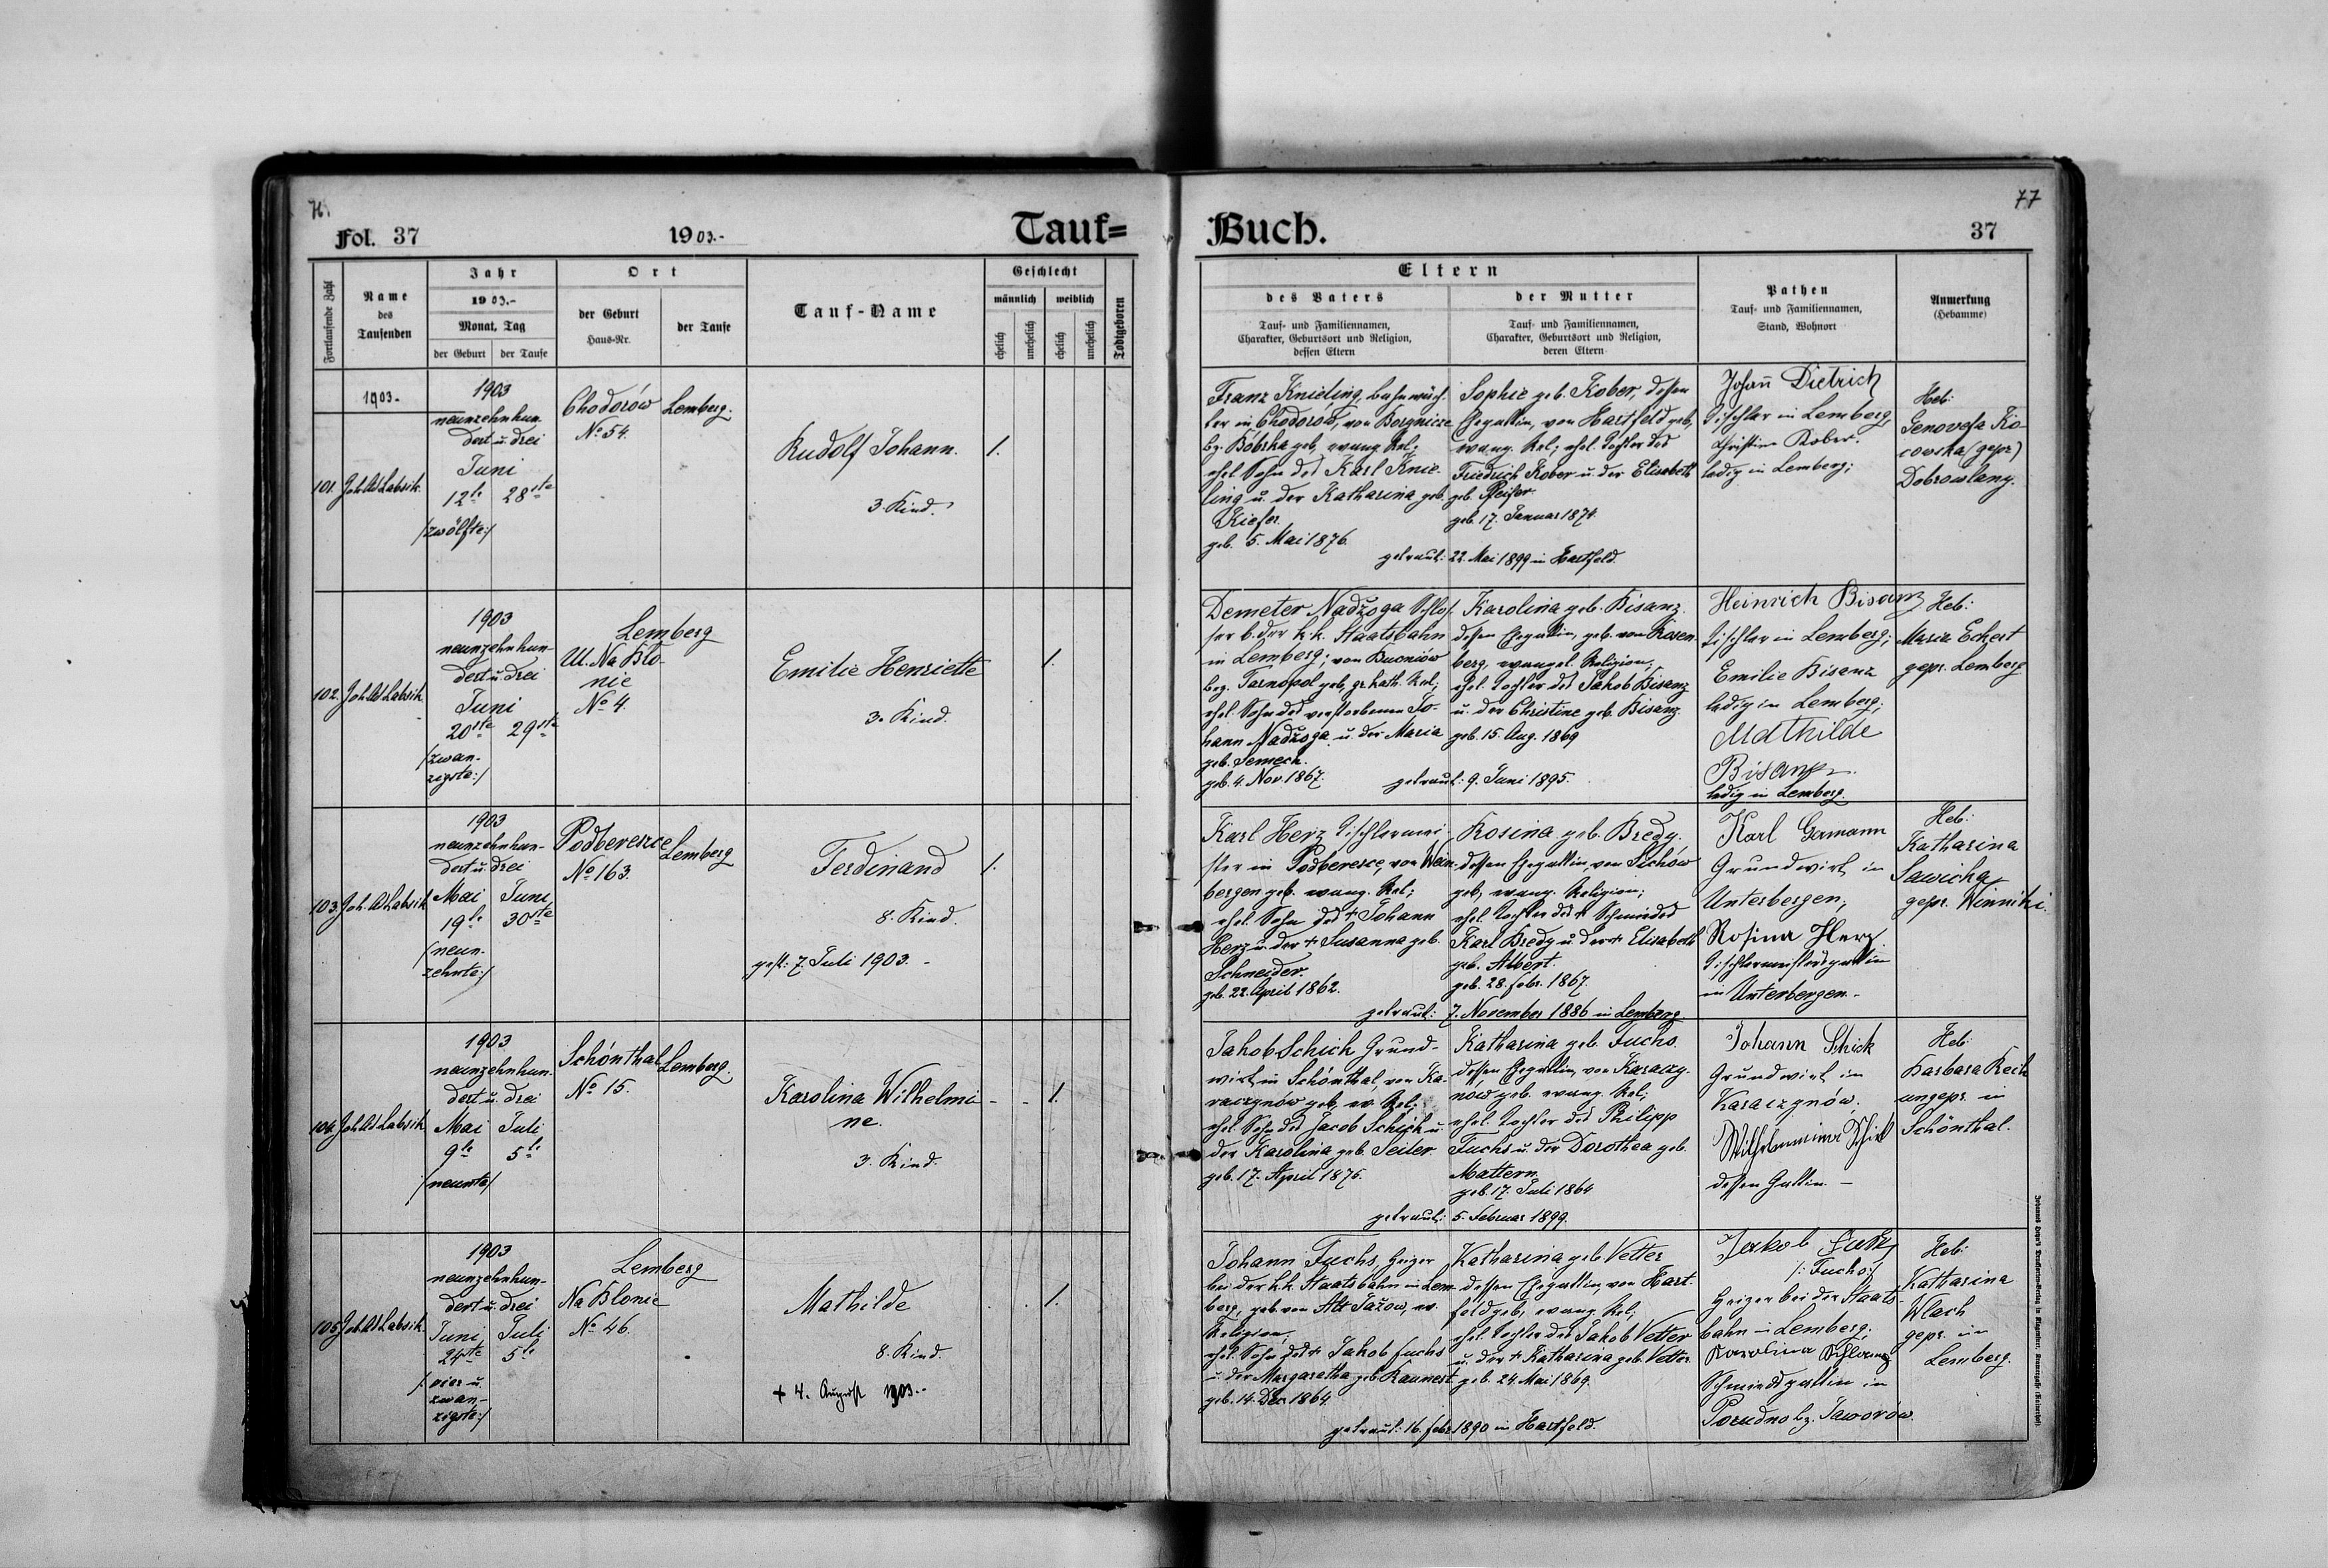 77
Fol. 37
1903.-
Tauf=
Buch.
37
Fortlaufende Zahl
Name
des
Taufenden
Jahr
1903.-
Monat, Tag
der Geburt
der Taufe
Ort
der Geburt
Haus-Nr.
der Taufe
Tauf-Name
Geschlecht
männlich
weiblich
ehelich
unehelich
ehelich
unehelich
Todtgeboren
Eltern
des Vaters
Tauf- und Familiennamen,
Charakter, Geburtsort und Religion,
dessen Eltern
der Mutter
Tauf- und Familiennamen,
Charakter, Geburtsort und Religion,
deren Eltern
Pathen
Tauf- und Familiennamen,
Stand, Wohnort
Anmerkung
(Hebamme)
1903.
101.
1903
neunzehnhun
dert u. drei
Juni
12te 28ste
/:zwölfte:/
Chodorów
No 54.
Lemberg.
Rudolf Johann.
3. Kind.
1.
Franz Knieling, Bahnwäch-
ter in Chodorów, von Borynicze
bz. Bóbrka geb, evang. Rel;
ehel. Sohn des Karl Knie-
ling u. der Katharina geb.
Kiefer.
geb. 5. Mai 1876.
Sophie geb. Kober, dessen
Ehegattin, von Hartfeld geb,
evang. Rel; ehel. Tochter des
Friedrich Kober u. der Elisabeth
geb. Pfeifer
geb. 17. Januar 1874.
getraut: 22. Mai 1899 in Hartfeld.
Johann Dietrich
Tischler in Lemberg,
Christine Kober.
ledig in Lemberg;
Heb:
Genovefa Ko-
cowska (gepr)
Dobrowlany.
102.
1903
neunzehnhun-
dert u. drei
Juni
20ste 29ste
/:zwan-
zigste:/
Lemberg
Ul. Na Bło-
nie
No 4.
Emilie Henriette
3. Kind.
1.
Demeter Nadžoga Schlos-
ser b. der k.k. Staatsbahn
in Lemberg; von Bucniów
bez. Tarnopol geb, gr. kath. Rel;
ehel. Sohn des verstorbenen Jo-
hann Nadžoga u. der Maria
geb. Semech.
geb. 4. Nov. 1867.
Karolina geb. Bisanz.
dessen Ehegattin, geb. von Rosen-
berg, evangel. Religion;
ehel. Tochter des Jakob Bisanz
u. der Christine geb. Bisanz.
geb. 15. Aug. 1869
getraut: 9. Juni 1895.
Heinrich Bisanz
Tischler in Lemberg;
Emilie Bisanz
ledig in Lemberg;
Mathilde
Bisanz.
ledig in Lemberg.
Heb:
Maria Eckert
gepr. Lemberg
103.
1903
neunzehnhun-
dert u. drei
Mai Juni
19te 30ste
/:neun-
zehnte:/
Podberezce
No 163.
Lemberg
Ferdinand
8. Kind.
gest: 7. Juli 1903.-
1.
Karl Herz Tischlermei-
ster in Podberezce, von Wein-
bergen geb. evang. Rel;
ehel. Sohn des + Johann
Herz u. der + Susanna geb.
Schneider.
geb. 22. April 1862.
Rosina geb. Bredy.
dessen Ehegattin, von Sichów
geb, evang. Religion;
ehel. Tochter des + Schmiedes
Karl Bredy u. der + Elisabeth
geb. Albert.
geb. 28. Febr. 1867.
getraut: 7. November 1886 in Lemberg.
Karl Gamann
Grundwirt in
Unterbergen;
Rosina Herz.
Tischlermeistersgattin
in Unterbergen.-
Heb:
Katharina
Sawicka
gepr. Winniki.
104.
1903
neunzehnhun-
dert u. drei
Mai Juli
9te 5te
/:neunte/
Schönthal
No 15.
Lemberg.
Karolina Wilhelmi-
ne.
3. Kind.
1.
Jakob Schick Grund-
wirt in Schönthal, von Ka-
raczynów geb, ev. Rel;
ehel. Sohn des Jacob Schick u.
der Karolina geb. Seiler.
geb. 17. April 1875.
Katharina geb. Fuchs.
dessen Ehegattin, von Karaczy-
nów geb. evang. Rel;
ehel. Tochter des Philipp
Fuchs u. der Dorothea geb.
Mattern.
geb. 17. Juli 1864
getraut: 5. Februar 1899.
Johann Schick
Grundwirt in
Karaczynów;
Wilhelmina Schick
dessen Gattin.-
Heb:
Barbara Reich
ungepr. in
Schönthal.
105.
1903
neunzehnhun-
dert u. drei
Juni Juli
24ste 5te
/:vier u.
zwan-
zigste:/
Lemberg
Na Błonie
No 46.
Mathilde
8. Kind.
+ 4. August 1903.-
1.
Johann Fuchs, Heizer
bei der k.k. Staatsbahn in Lem-
berg, geb. von Alt Jažow, ev.
Religion;
ehel. Sohn des + Jakob Fuchs
u. der Margaretha geb Kaunert
geb. 14. Dez. 1864.
Katharina geb Vetter
dessen Ehegattin, von Hart-
feld geb, evang. Rel;
ehel. Tochter des Jakob Vetter
u. der + Katharina geb. Vetter.
geb. 24. Mai 1869.
getraut: 16. Febr. 1890 in Hartfeld.
Jakob
/: Fuchs:/
Heizer bei der Staats-
bahn in Lemberg;
Karolina
Schmiedsgattin in
Porudno bz. Jaworów.
Heb:
Katharina
Wlach
gepr. in
Lemberg.